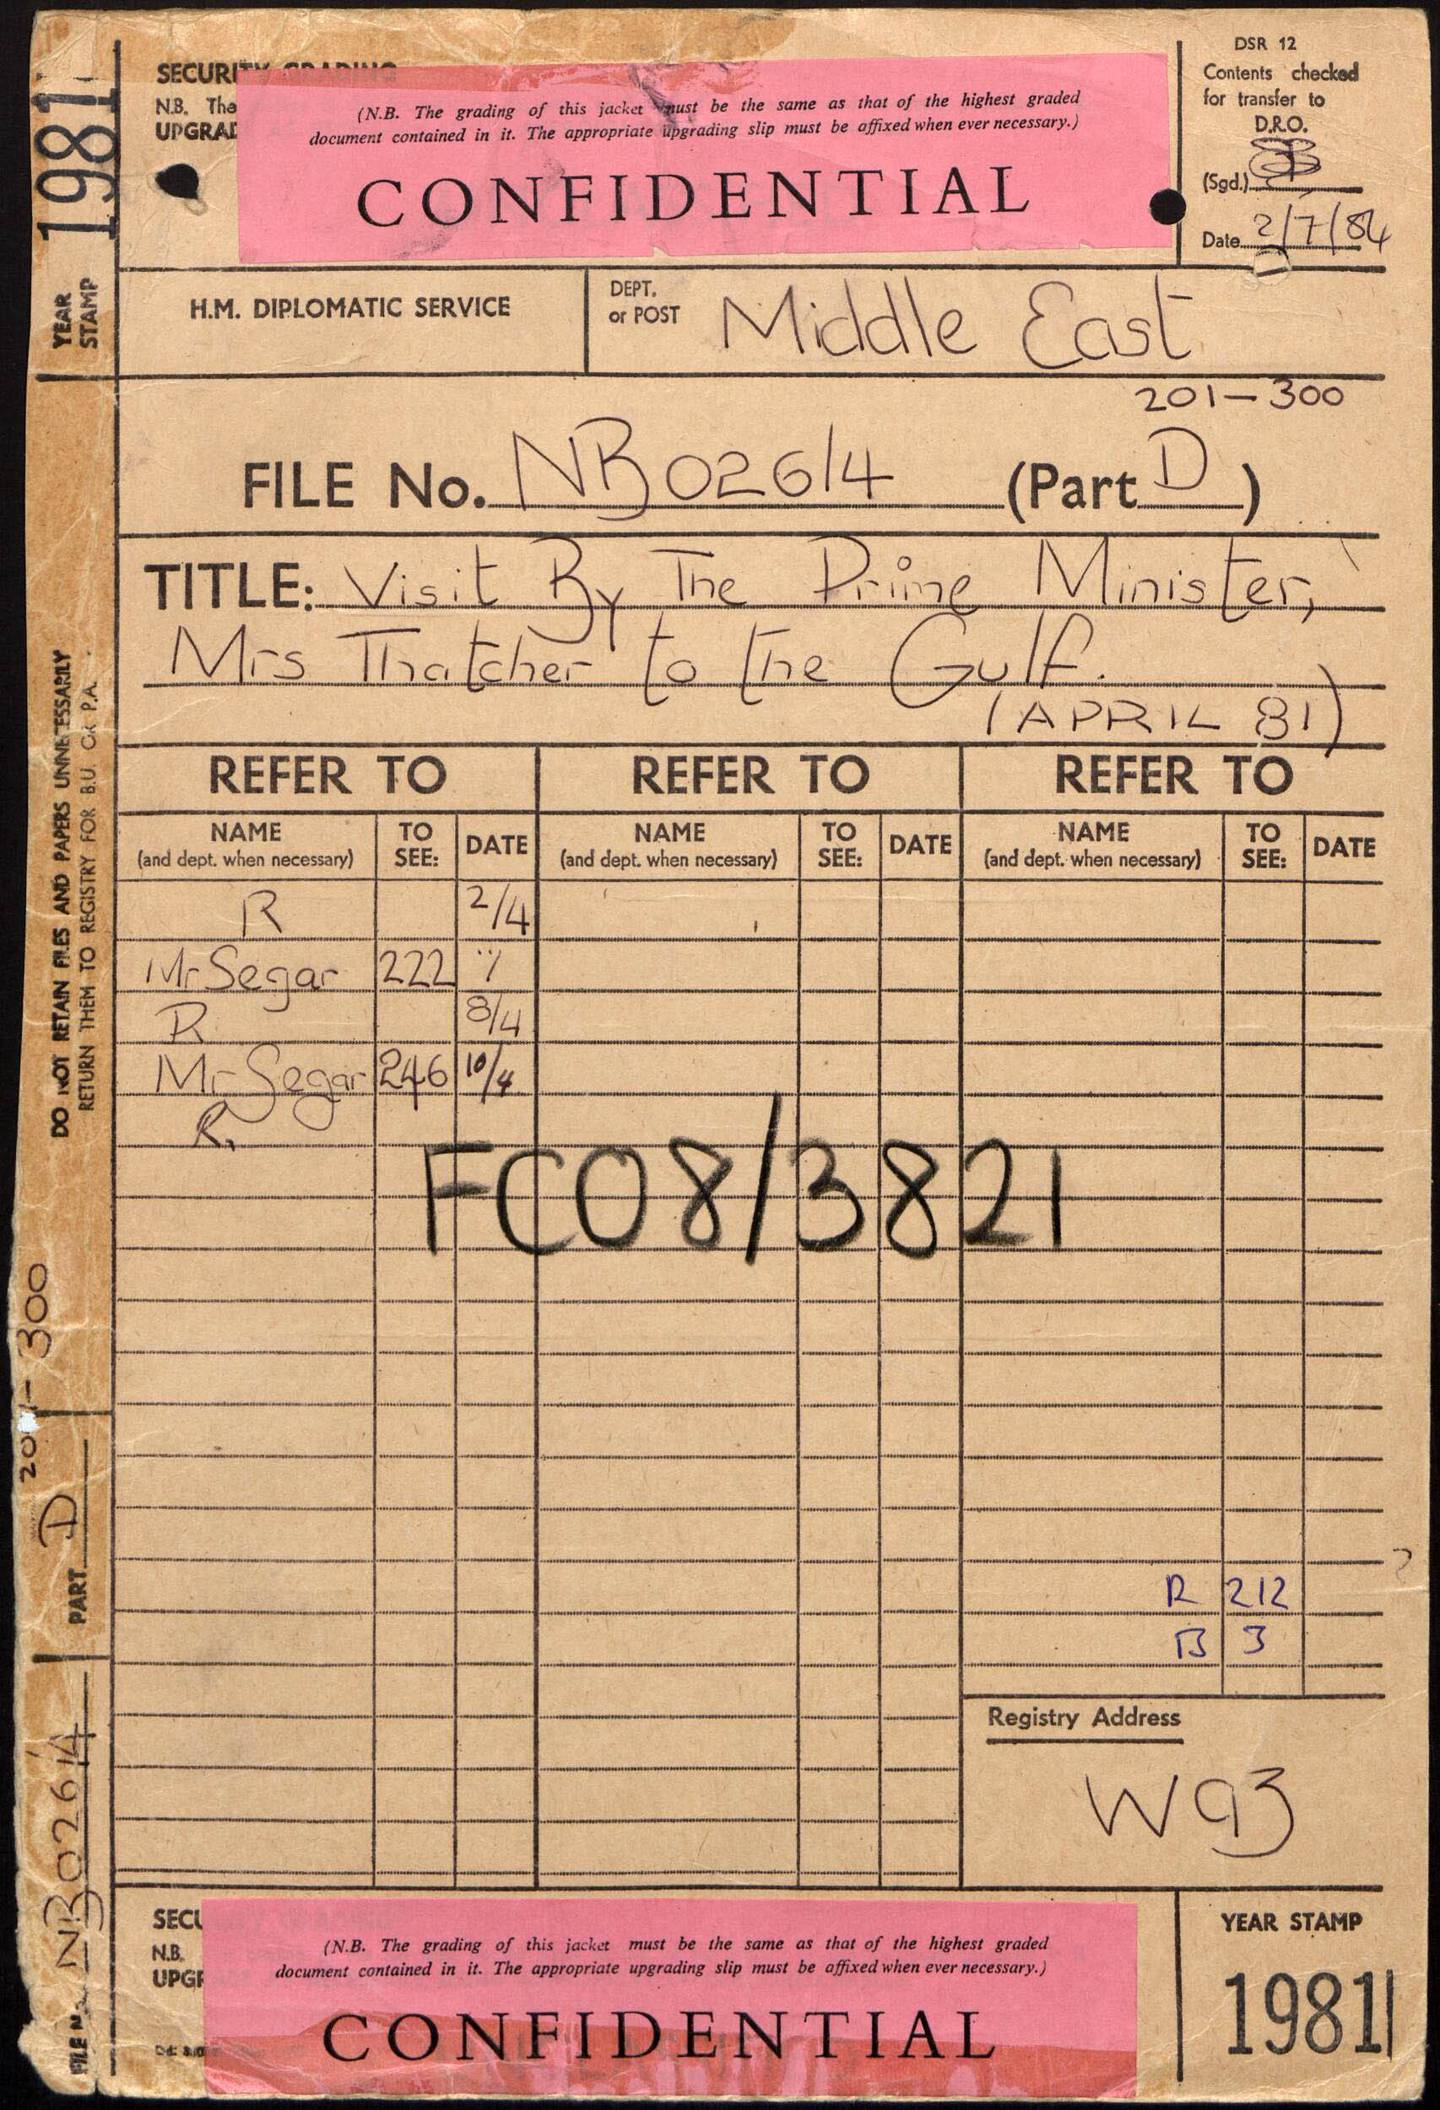 SECURITY GRADING
N.B. The
UPGRAD
(N.B. The grading of this jacket must be the same as that of the highest graded
document contained in it. The appropriate upgrading slip must be affixed when ever necessary.)
CONFIDENTIAL
DSR 12
Contents checked
for transfer to
D.R.O.
(Sgd.)
Date 2/7/84
YEAR STAMP 1981
H.M. DIPLOMATIC SERVICE
DEPT. or POST Middle East
201-300
FILE No. NB 026/4 (Part D)
TITLE: Visit By The Prime Minister,
Mrs Thatcher to the Gulf.
(APRIL 81)
REFER TO REFER TO REFER TO
NAME TO SEE: DATE NAME TO SEE: DATE NAME TO SEE: DATE
(and dept. when necessary) (and dept. when necessary) (and dept. when necessary)
R 2/4
Mr Segar 222
R 8/4
Mr Segar 246 10/4
R.
FCO8/3821
R 212
B 3
Registry Address
W93
DO NOT RETAIN FILES AND PAPERS UNNECESSARILY
RETURN THEM TO REGISTRY FOR B.U. OR P.A.
201-300
PART D
FILE No. NB026/4
SECU
N.B.
UPGR
(N.B. The grading of this jacket must be the same as that of the highest graded
document contained in it. The appropriate upgrading slip must be affixed when ever necessary.)
CONFIDENTIAL
YEAR STAMP
1981